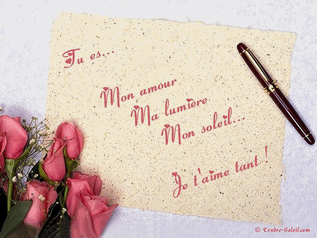 Tu es...
Mon amour
Ma lumière
Mon soleil...
Je t'aime tant !
© Tendre-Soleil.com